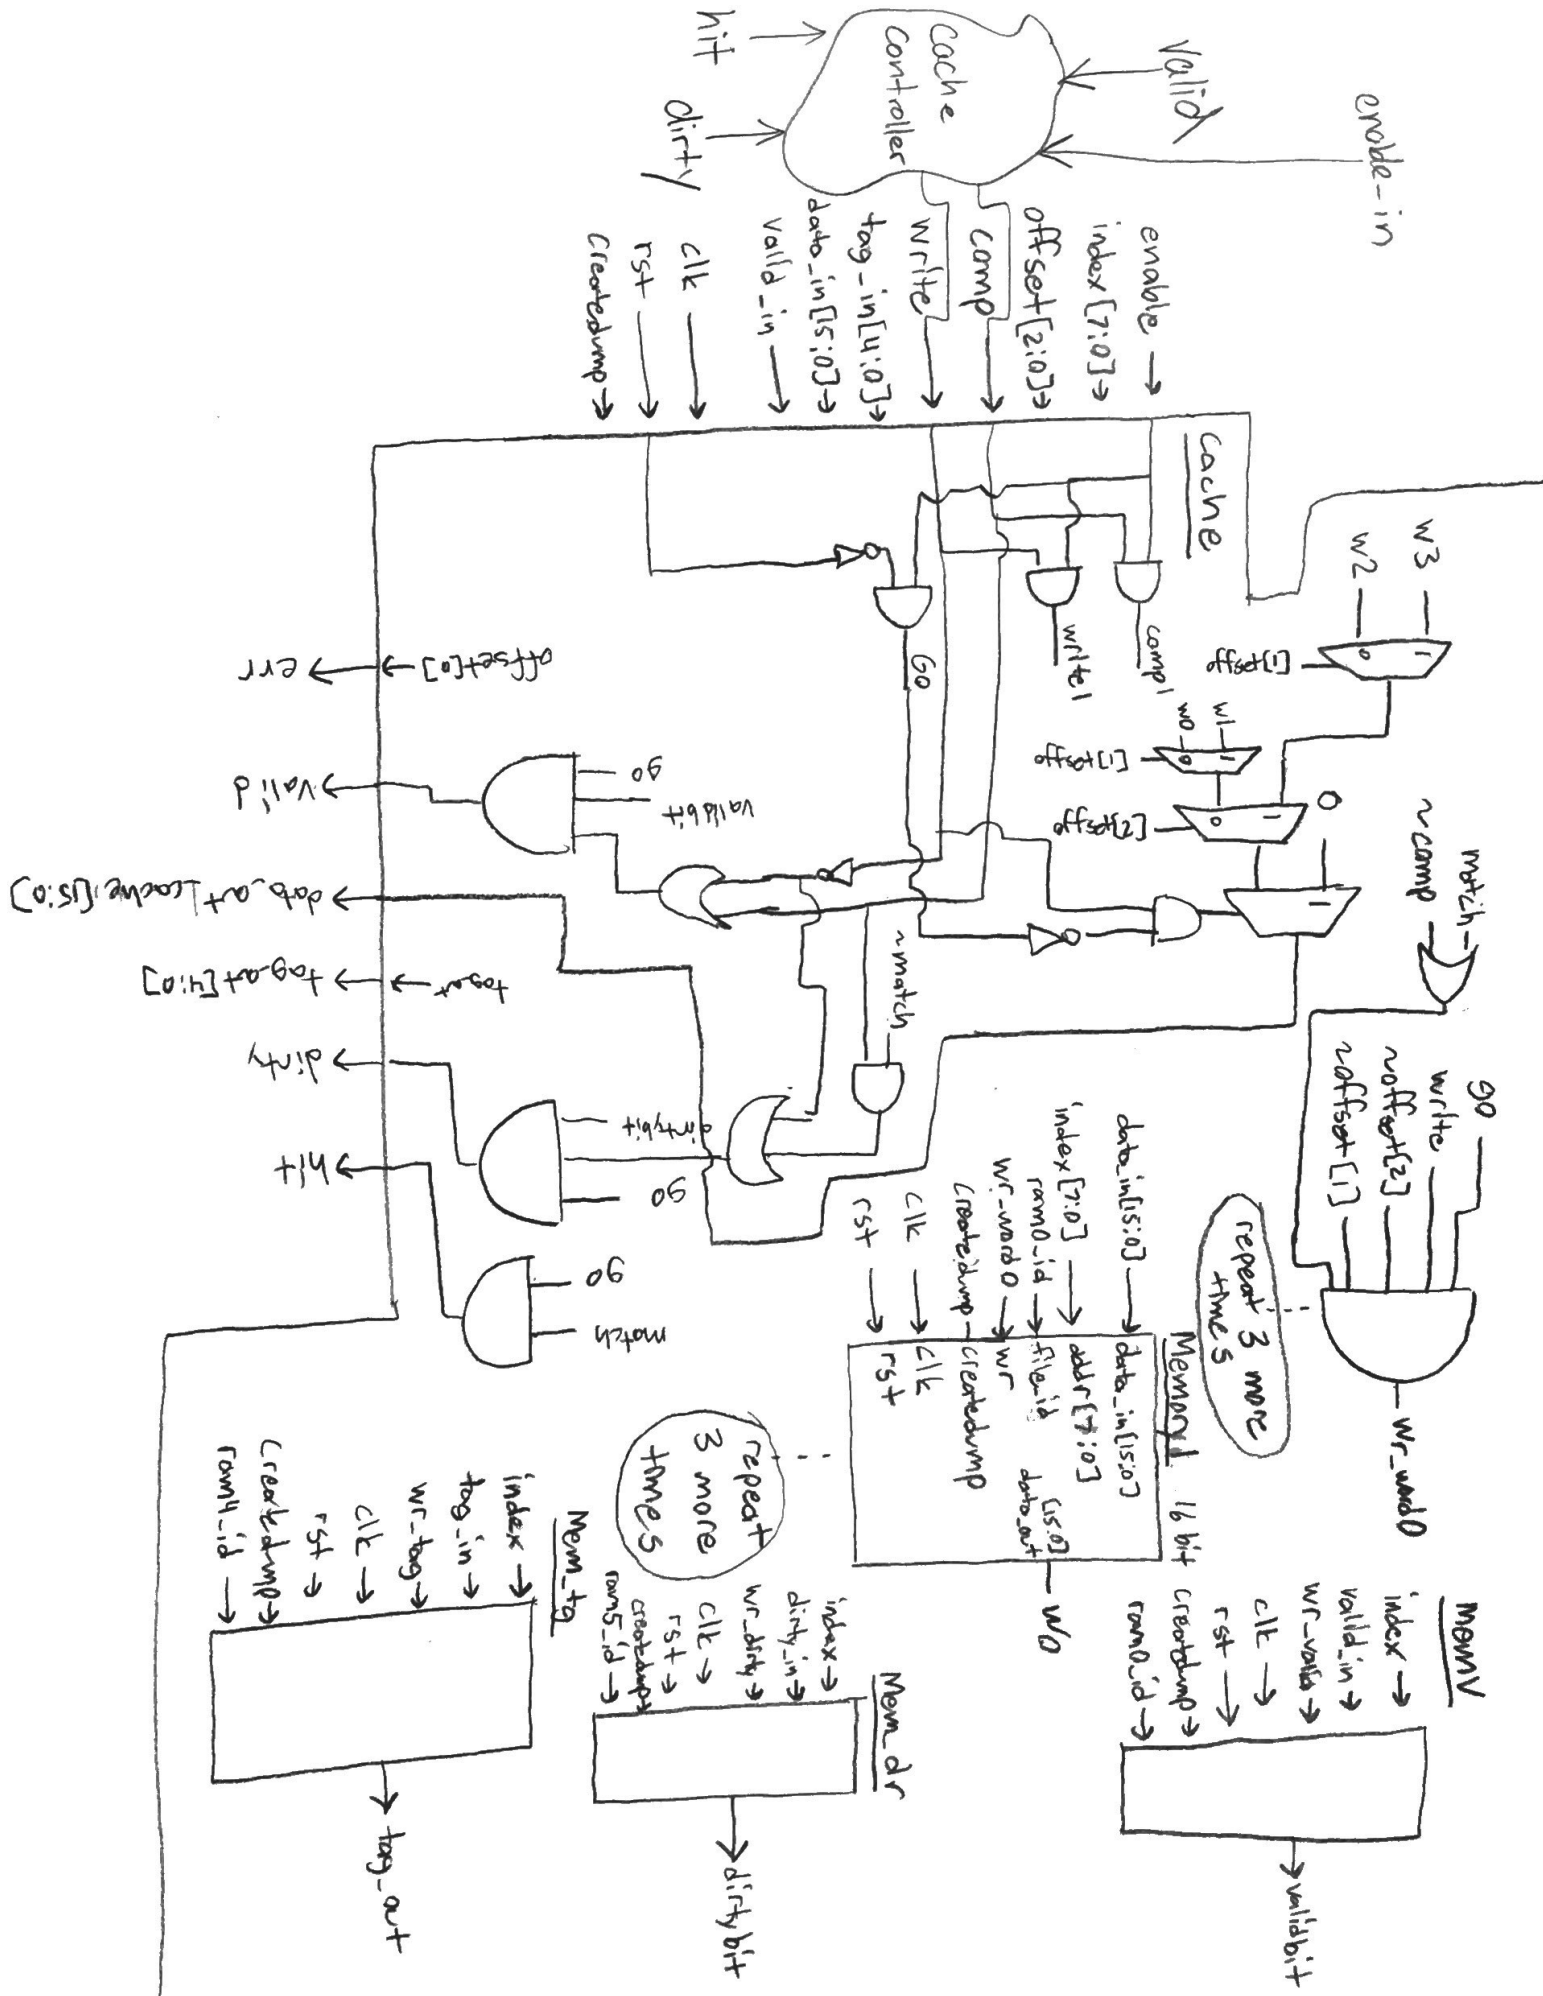 enable-in
Valid
Cache
Controller
hit
dirty
enable
index[7:0]
offset[2:0]
comp
write
tag_in[4:0]
data_in[15:0]
valid_in
clk
rst
createdump
Cache
w3
w2
1
0
offset[1]
w1
w0
1
0
offset[1]
1
0
offset[2]
0
1
comp1
write1
Go
match
~comp
go
write
~offset[2]
~offset[1]
wr_word0
repeat 3 more
times
~match
offset[0]
err
go
validbit
valid
data_out_cache[15:0]
tag_out
tag_out[4:0]
dirtybit
go
dirty
go
match
hit
Memory1 16 bit
data_in[15:0]
index[7:0]
ram0_id
wr_word0
createdump
clk
rst
data_in[15:0]
addr[7:0]
file_id
wr
createdump
clk
rst
[15:0]
data_out
w0
repeat
3 more
times
memV
index
valid_in
wr_valid
clk
rst
createdump
ram0_id
validbit
Mem_dr
index
dirty_in
wr_dirty
clk
rst
createdump
ram5_id
dirtybit
Mem_tg
index
tag_in
wr_tag
clk
rst
Createdump
ram4_id
tag_out